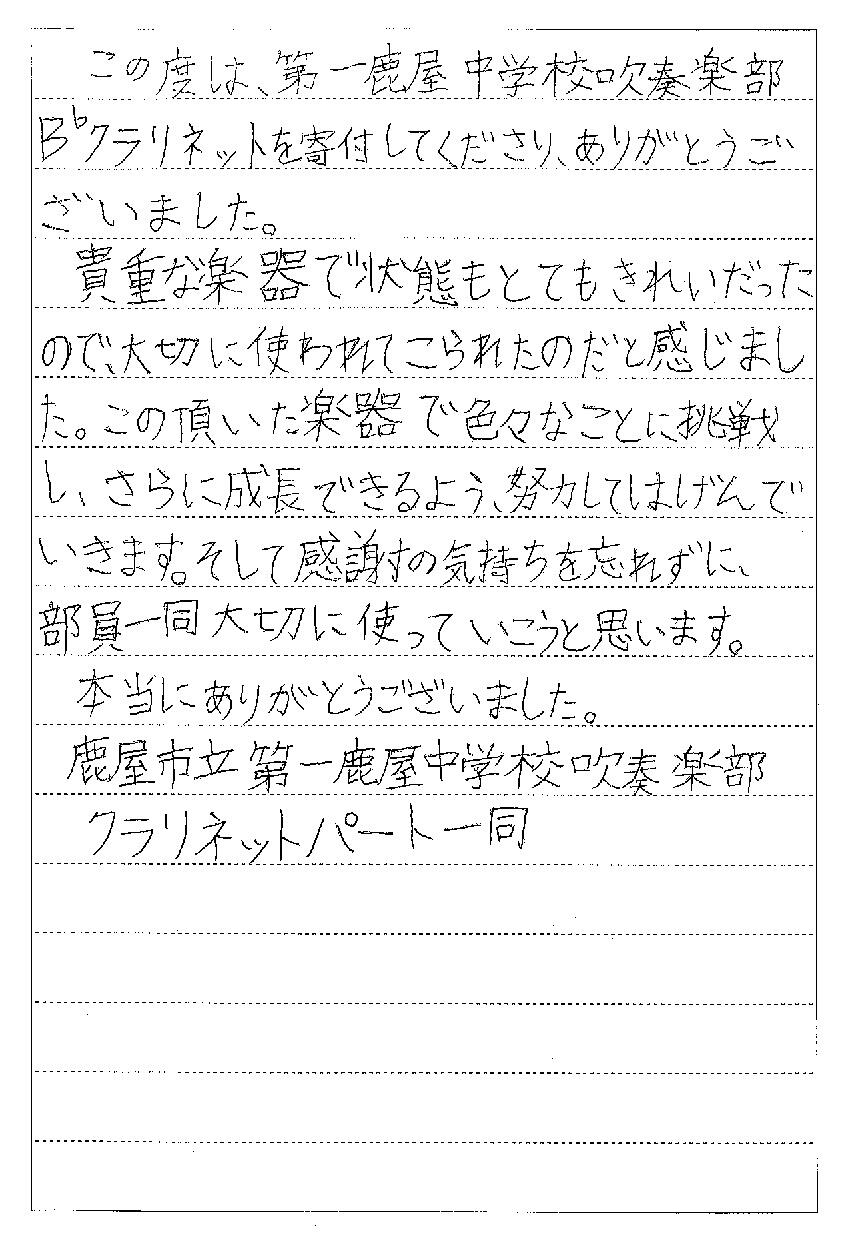 この度は、第一鹿屋中学校吹奏楽部
B♭クラリネットを寄付してくださり、ありがとうご
ざいました。
貴重な楽器で状態もとてもきれいだった
ので、大切に使われてこられたのだと感じまし
た。この頂いた楽器で色々なことに挑戦
し、さらに成長できるよう、努力してはげんで
いきます。そして感謝の気持ちを忘れずに、
部員一同大切に使っていこうと思います。
本当にありがとうございました。
鹿屋市立第一鹿屋中学校吹奏楽部
クラリネットパート一同